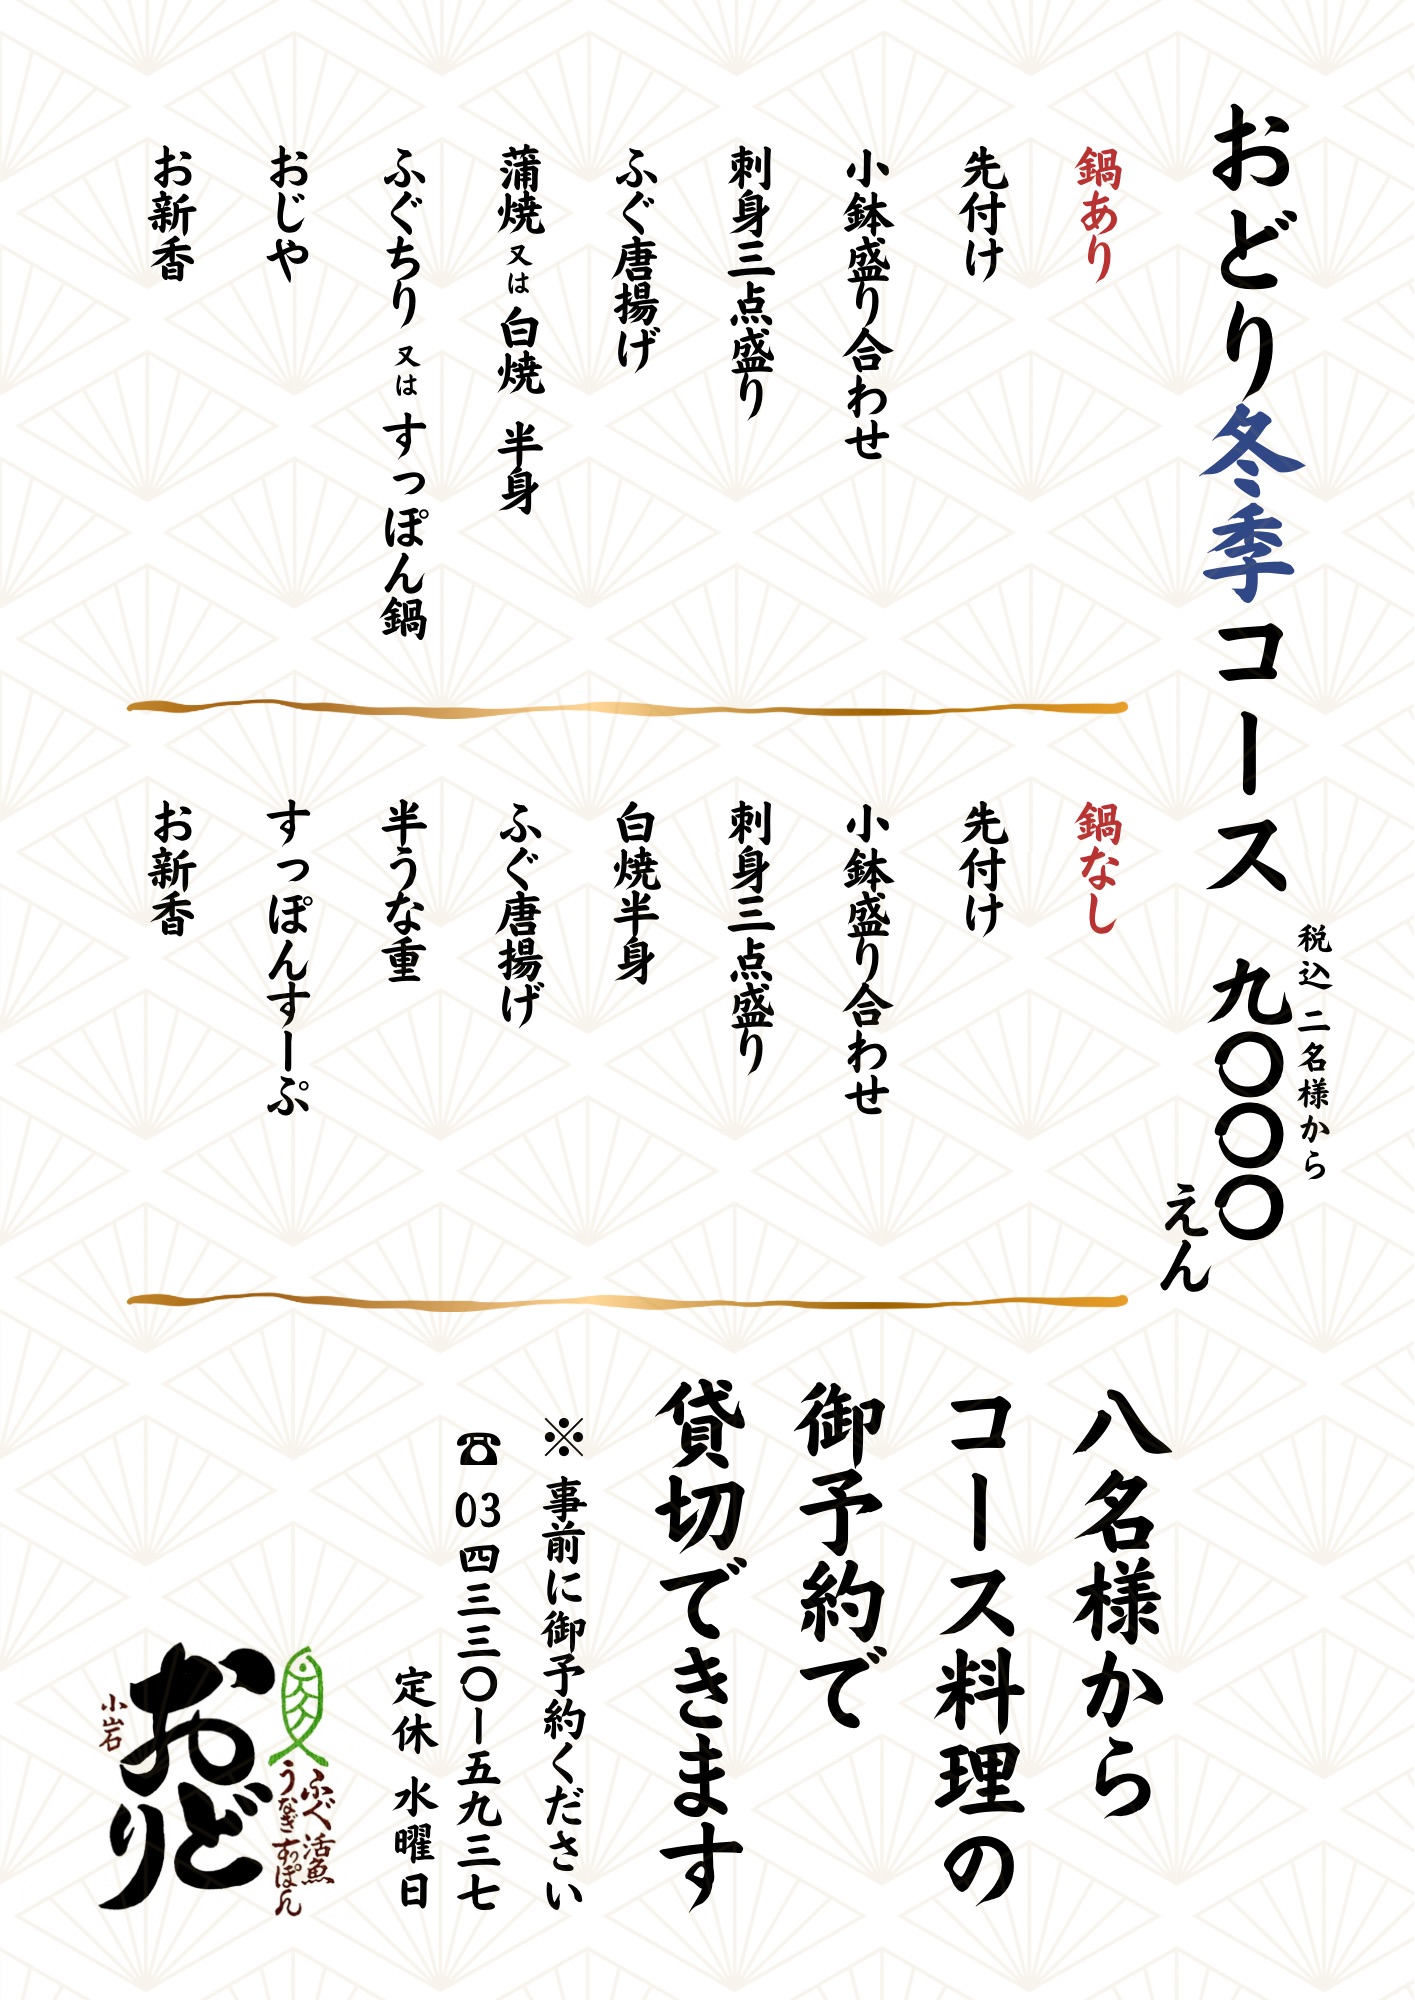 おどり冬季コース 九〇〇〇えん
税込 二名様から
鍋あり
先付け
小鉢盛り合わせ
刺身三点盛り
ふぐ唐揚げ
蒲焼 又は 白焼 半身
ふぐちり 又は すっぽん鍋
おじや
お新香
鍋なし
先付け
小鉢盛り合わせ
刺身三点盛り
白焼半身
ふぐ唐揚げ
半うな重
すっぽんすーぷ
お新香
八名様から
コース料理の
御予約で
貸切できます
※ 事前に御予約ください
☎ 03四三三〇ー五九三七
定休 水曜日
ふぐ 活魚
うなぎ すっぽん
おどり
小岩